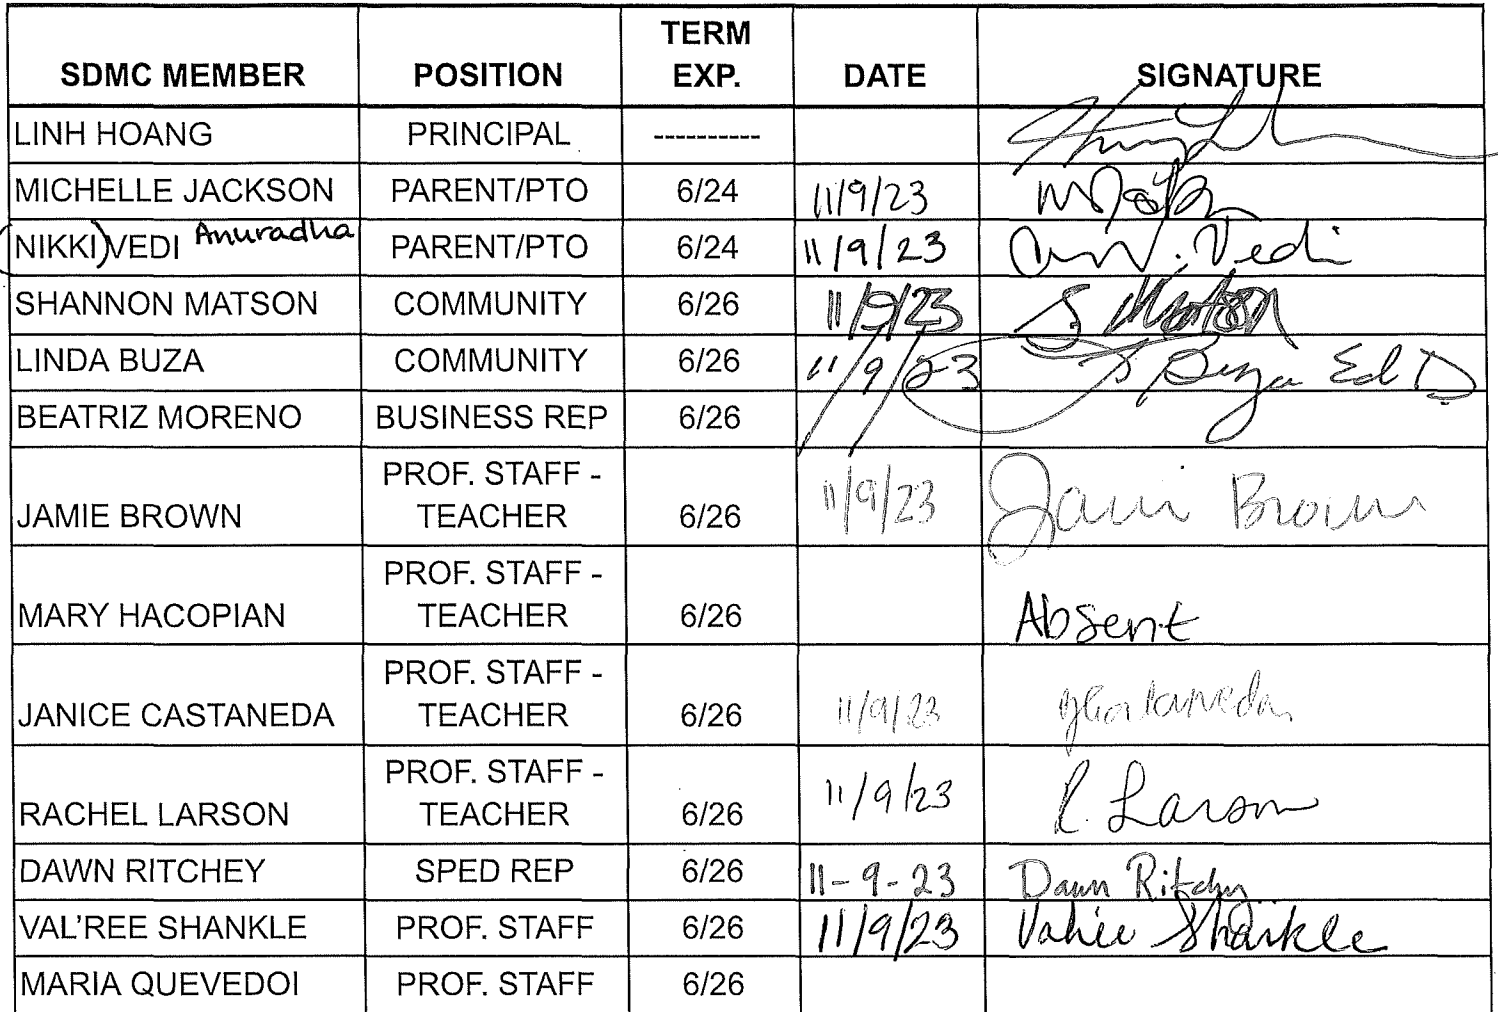 SDMC MEMBER POSITION TERM EXP. DATE SIGNATURE
LINH HOANG PRINCIPAL ----------
MICHELLE JACKSON PARENT/PTO 6/24 11/9/23
(NIKKI) VEDI Anuradha PARENT/PTO 6/24 11/9/23 Vedi
SHANNON MATSON COMMUNITY 6/26 11/9/23 S Matson
LINDA BUZA COMMUNITY 6/26 11/9/23 Buza Ed D
BEATRIZ MORENO BUSINESS REP 6/26
PROF. STAFF -
JAMIE BROWN TEACHER 6/26 11/9/23 Jami Brown
PROF. STAFF -
MARY HACOPIAN TEACHER 6/26 Absent
PROF. STAFF -
JANICE CASTANEDA TEACHER 6/26 11/9/23 JCastaneda
PROF. STAFF -
RACHEL LARSON TEACHER 6/26 11/9/23 R. Larson
DAWN RITCHEY SPED REP 6/26 11-9-23 Dawn Ritchey
VAL'REE SHANKLE PROF. STAFF 6/26 11/9/23 Valrie Shankle
MARIA QUEVEDOI PROF. STAFF 6/26